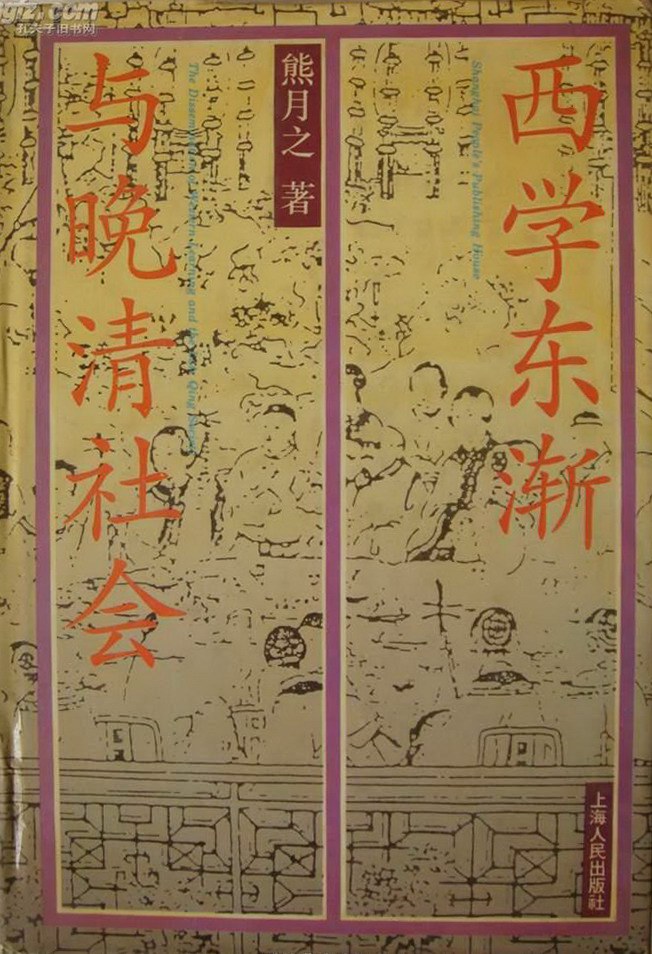 西学东渐
与晚清社会
熊月之 著
Shanghai People's Publishing House
The Dissemination of Western Learning and the Late Qing Society
上海人民出版社
孔夫子旧书网